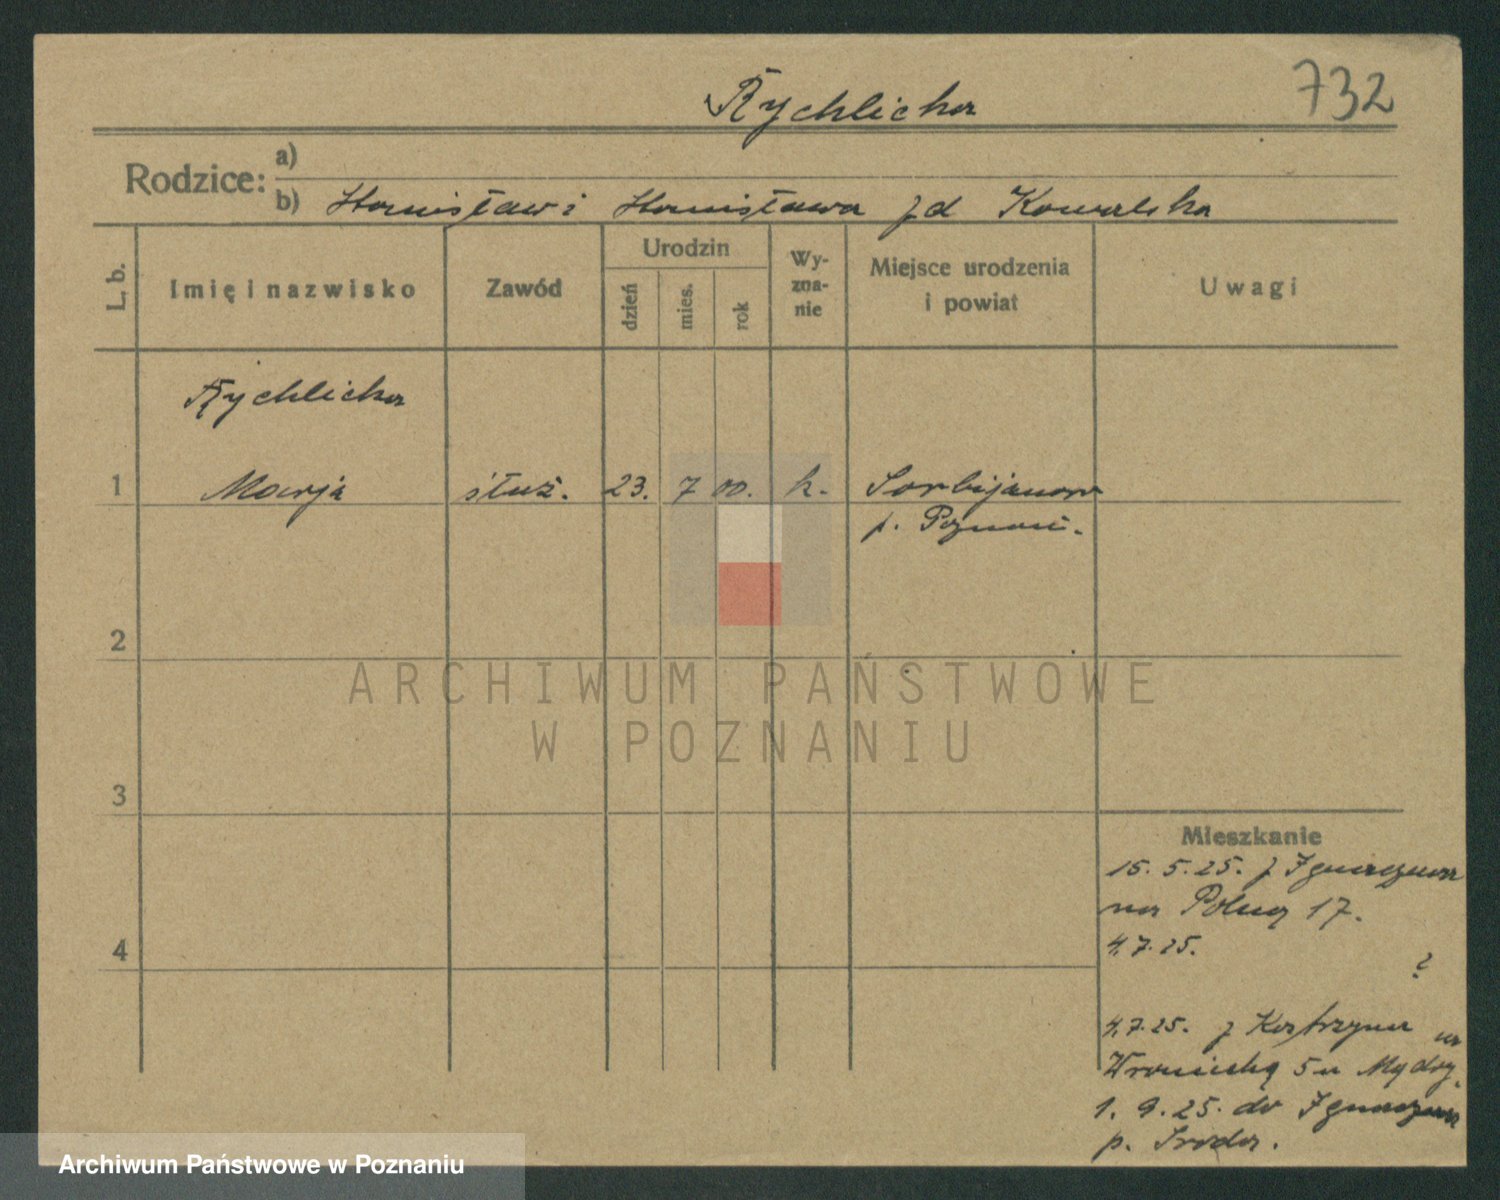 Rychlicka
732
Rodzice: a)
b) Stanisław i Stanisława zd Kowalska
L. b.
Imię i nazwisko
Zawód
Urodzin
dzień
mies.
rok
Wy-
zna-
nie
Miejsce urodzenia
i powiat
Uwagi
Rychlicka
1 Marja służ. 23. 7 00. k. Sarbijanowo
p. Poznań.
2
3
4
Mieszkanie
15. 5. 25. z Ignaczewa
na Polną 17.
4.7.25. ?
4.7.25. z Kostrzyna na
Wroniecką 5 u Mądry.
1. 9. 25. do
p. Środa.
ARCHIWUM PAŃSTWOWE
W POZNANIU
Archiwum Państwowe w Poznaniu